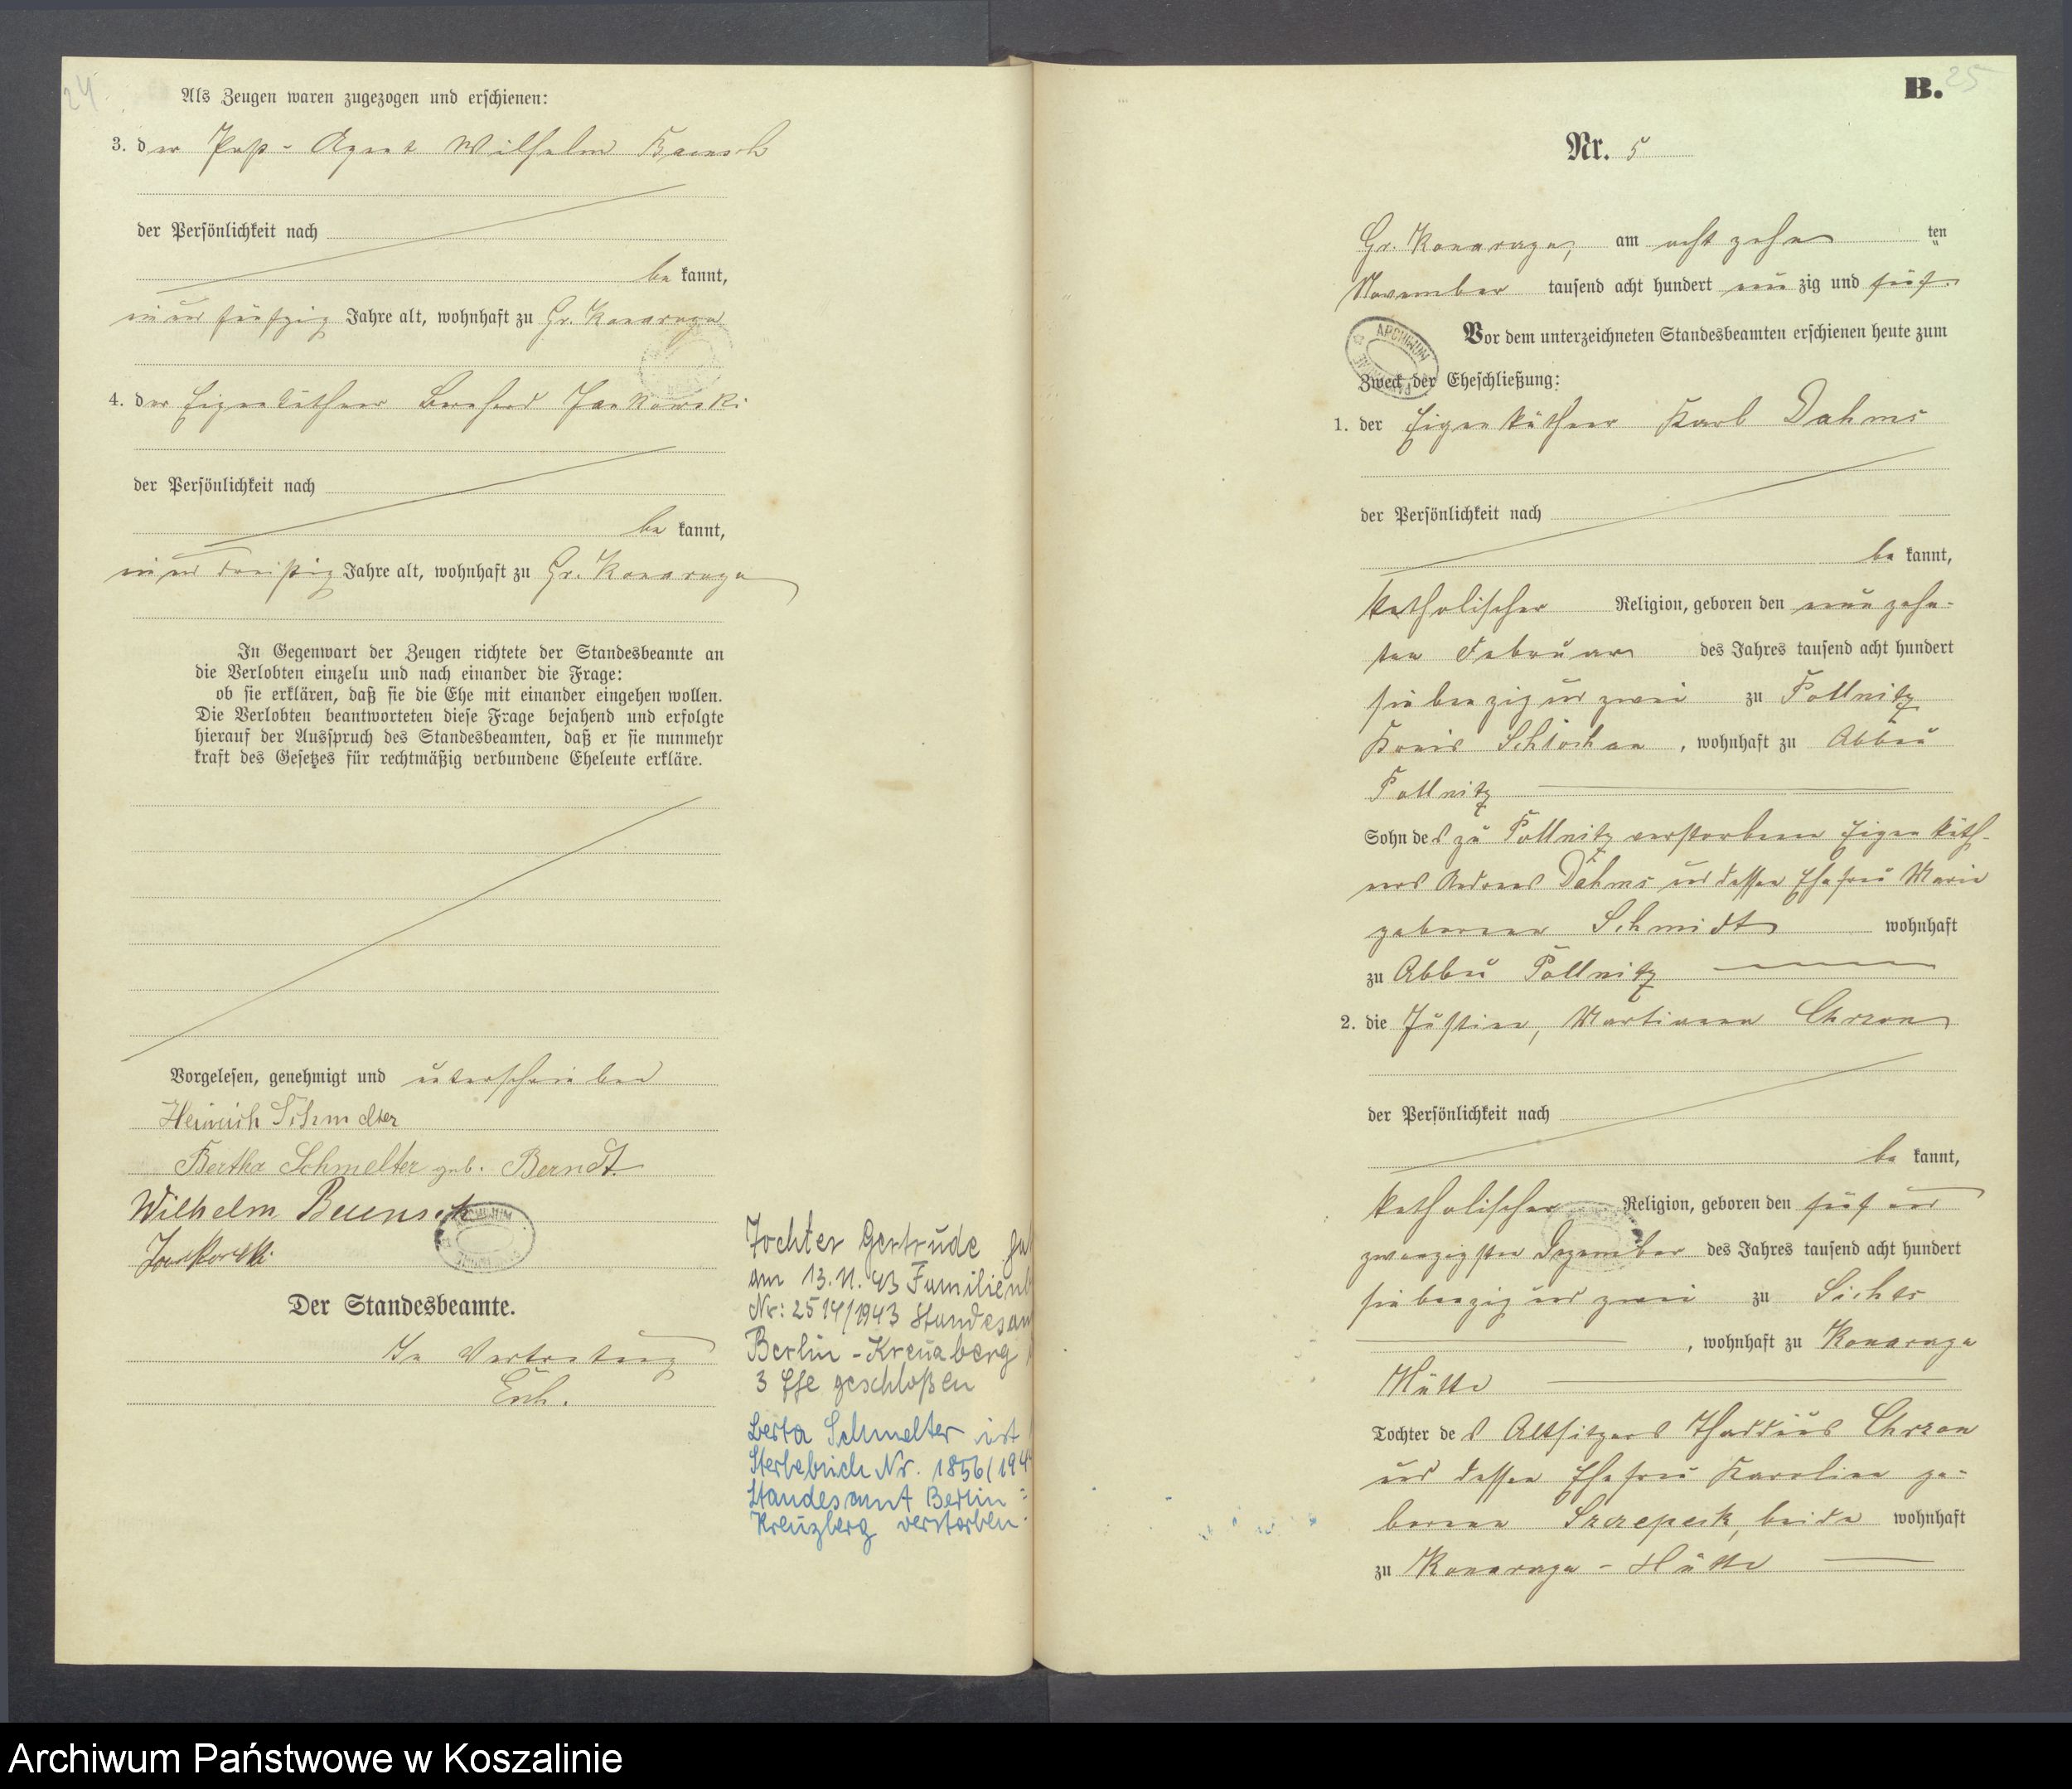 24
Als Zeugen waren zugezogen und erschienen:
3. der Post-Agent Wilhelm Baensch
der Persönlichkeit nach
be kannt,
fünfzig Jahre alt, wohnhaft zu Gr. Konarzyn
4. der Eigenkäthner Bernhard Jankowski
der Persönlichkeit nach
be kannt,
dreißig Jahre alt, wohnhaft zu Gr. Konarzyn
In Gegenwart der Zeugen richtete der Standesbeamte an
die Verlobten einzeln und nach einander die Frage:
ob sie erklären, daß sie die Ehe mit einander eingehen wollen.
Die Verlobten beantworteten diese Frage bejahend und erfolgte
hierauf der Ausspruch des Standesbeamten, daß er sie nunmehr
kraft des Gesetzes für rechtmäßig verbundene Eheleute erkläre.
Vorgelesen, genehmigt und unterschrieben
Heinrich Schmelter
Bertha Schmelter geb. Berndt
Wilhelm Baensch
Jankowski
Der Standesbeamte.
In Vertretung
Tochter Gertrude
am 13.11.43
Nr: 2514/1943
Berlin-Kreuzberg
3 Ehe geschloßen
Berta Schmelter ist
Sterbebuch Nr. 1856/194
Standesamt Berlin-
Kreuzberg verstorben.
B. 25
Nr. 5
Gr. Konarzyn, am achtzehn ten
November tausend acht hundert neun zig und fünf
Vor dem unterzeichneten Standesbeamten erschienen heute zum
Zweck der Eheschließung:
1. der Eigenkäthner Karl Dahms
der Persönlichkeit nach
be kannt,
katholischer Religion, geboren den neunzehn-
ten Februar des Jahres tausend acht hundert
siebenzig und zwei zu Pollnitz
Kreis Schlochau, wohnhaft zu Abbau
Pollnitz
Sohn des zu Pollnitz verstorbenen Eigenkäth-
ners Andreas Dahms und dessen Ehefrau Marie
geborenen Schmidt wohnhaft
zu Abbau Pollnitz
2. die Justine, Marianna Chrzan
der Persönlichkeit nach
be kannt,
katholischer Religion, geboren den fünf und
zwanzigsten Dezember des Jahres tausend acht hundert
siebenzig und zwei zu Sichts
, wohnhaft zu Konarzyn
Hütte
Tochter des Altsitzers Thaddäus Chrzan
und dessen Ehefrau Karoline ge-
borenen beide wohnhaft
zu Konarzyn-Hütte
Archiwum Państwowe w Koszalinie